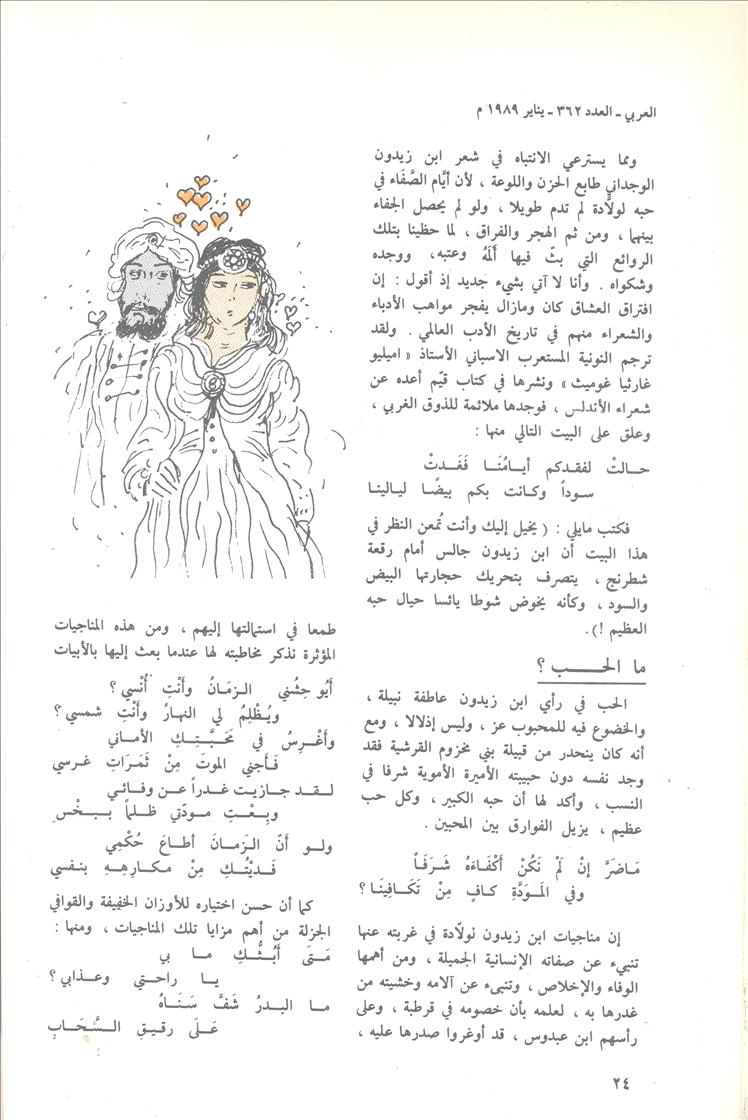 العربي ـ العدد ٣٦٢ ـ يناير ١٩٨٩ م
ومما يسترعي الانتباه في شعر ابن زيدون
الوجداني طابع الحزن واللوعة ، لأن أيَّام الصَّفَاء في
حبه لولَّادة لم تدم طويلا ، ولو لم يحصل الجفاء
بينهما ، ومن ثم الهجر والفراق ، لما حظينا بتلك
الروائع التي بثّ فيها أَلَمَهُ وعتبه، ووجده
وشكواه . وأنا لا آتي بشيء جديد إذ أقول : إن
افتراق العشاق كان ومازال يفجر مواهب الأدباء
والشعراء منهم في تاريخ الأدب العالمي . ولقد
ترجم النونية المستعرب الاسباني الأستاذ « اميليو
غارثيا غوميث» ونشرها في كتاب قيّم أعده عن
شعراء الأندلس ، فوجدها ملائمة للذوق الغربي ،
وعلق على البيت التالي منها :
حـالتْ لفقدكم أيـامُنَـا فَغَـدتْ
سـوداً وكـانت بكم بيضًـا ليـالينا
فكتب مايلي : ( يخيل إليك وأنت تُمعن النظر في
هذا البيت أن ابن زيدون جالس أمام رقعة
شطرنج ، يتصرف بتحريك حجارتها البيض
والسود ، وكأنه يخوض شوطا يائسا حيال حبه
العظيم !).
ما الحـــب ؟
الحب في رأي ابن زيدون عاطفة نبيلة ،
والخضوع فيه للمحبوب عز ، وليس إذلالا ، ومع
أنه كان ينحدر من قبيلة بني مخزوم القرشية فقد
وجد نفسه دون حبيبته الأميرة الأموية شرفا في
النسب ، وأكد لها أن حبه الكبير ، وكل حب
عظيم ، يزيل الفوارق بين المحبين .
مَـاضَرَّ إنْ لَمْ نَكُنْ أَكْفَـاءَهُ شَـرَفَـاً
وفي المَـوَدَّةِ كـافٍ مِنْ تَكَـافِينَـا ؟
إن مناجيات ابن زيدون لولّادة في غربته عنها
تنبيء عن صفاته الإنسانية الجميلة ، ومن أهمها
الوفاء والإخلاص ، وتنبىء عن آلامه وخشيته من
غدرها به ، لعلمه بأن خصومه في قرطبة ، وعلى
رأسهم ابن عبدوس ، قد أوغروا صدرها عليه ،
طمعا في استمالتها إليهم ، ومن هذه المناجيات
المؤثرة نذكر مخاطبته لها عندما بعث إليها بالأبيات
أَيُوحِشُني الـزمَـانُ وأَنْتِ أُنْسِي ؟
ويُظْلِمُ لي النهـارُ وأَنْتِ شمسي ؟
وأَغْـرِسُ في مَحَبَّـتِـكِ الأمـاني
فَـأجني الموتَ مِنْ ثَمَـرَاتِ غـرسي
لـقـد جـازيـت غـدراً عـن وفـائـي
وبِـعْـتِ مـودّتي ظـلـماً بـبـخْسٍ
ولـو أنّ الـزمـانَ أطـاعَ حُكْمِي
فَـديْتُـكِ مِنْ مكـارِهِـهِ بنفسي
كما أن حسن اختياره للأوزان الخفيفة والقوافي
الجزلة من أهم مزايا تلك المناجيات ، ومنها :
مَـتَـى أَبُـثُّـكِ مـا بي
يـا راحـتي وعـذابي ؟
مـا البـدرُ شَفَّ سَنَـاهُ
عَـلَى رقـيقِ الـسَّحَـابِ
٢٤